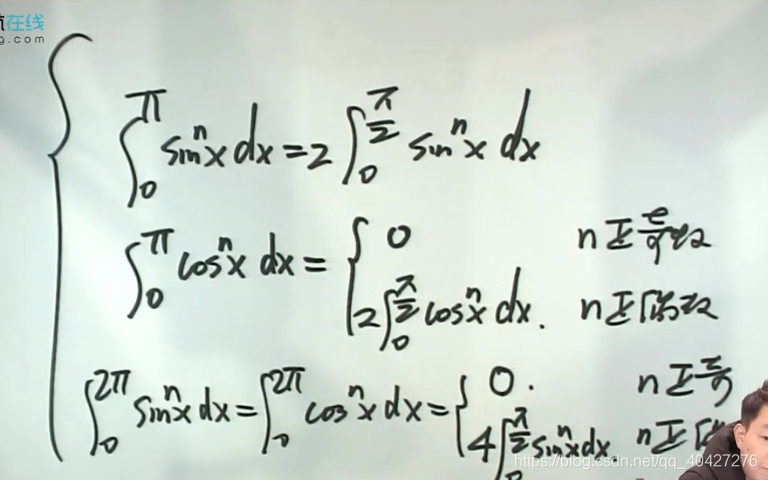 航在线
g.com
∫₀^π sinⁿx dx = 2 ∫₀^(π/2) sinⁿx dx
∫₀^π cosⁿx dx = { 0 n正奇数
2∫₀^(π/2) cosⁿx dx. n正偶数
∫₀^(2π) sinⁿx dx = ∫₀^(2π) cosⁿx dx = { 0. n正奇
4∫₀^(π/2) sinⁿx dx. n正偶
https://blog.csdn.net/qq_40427276